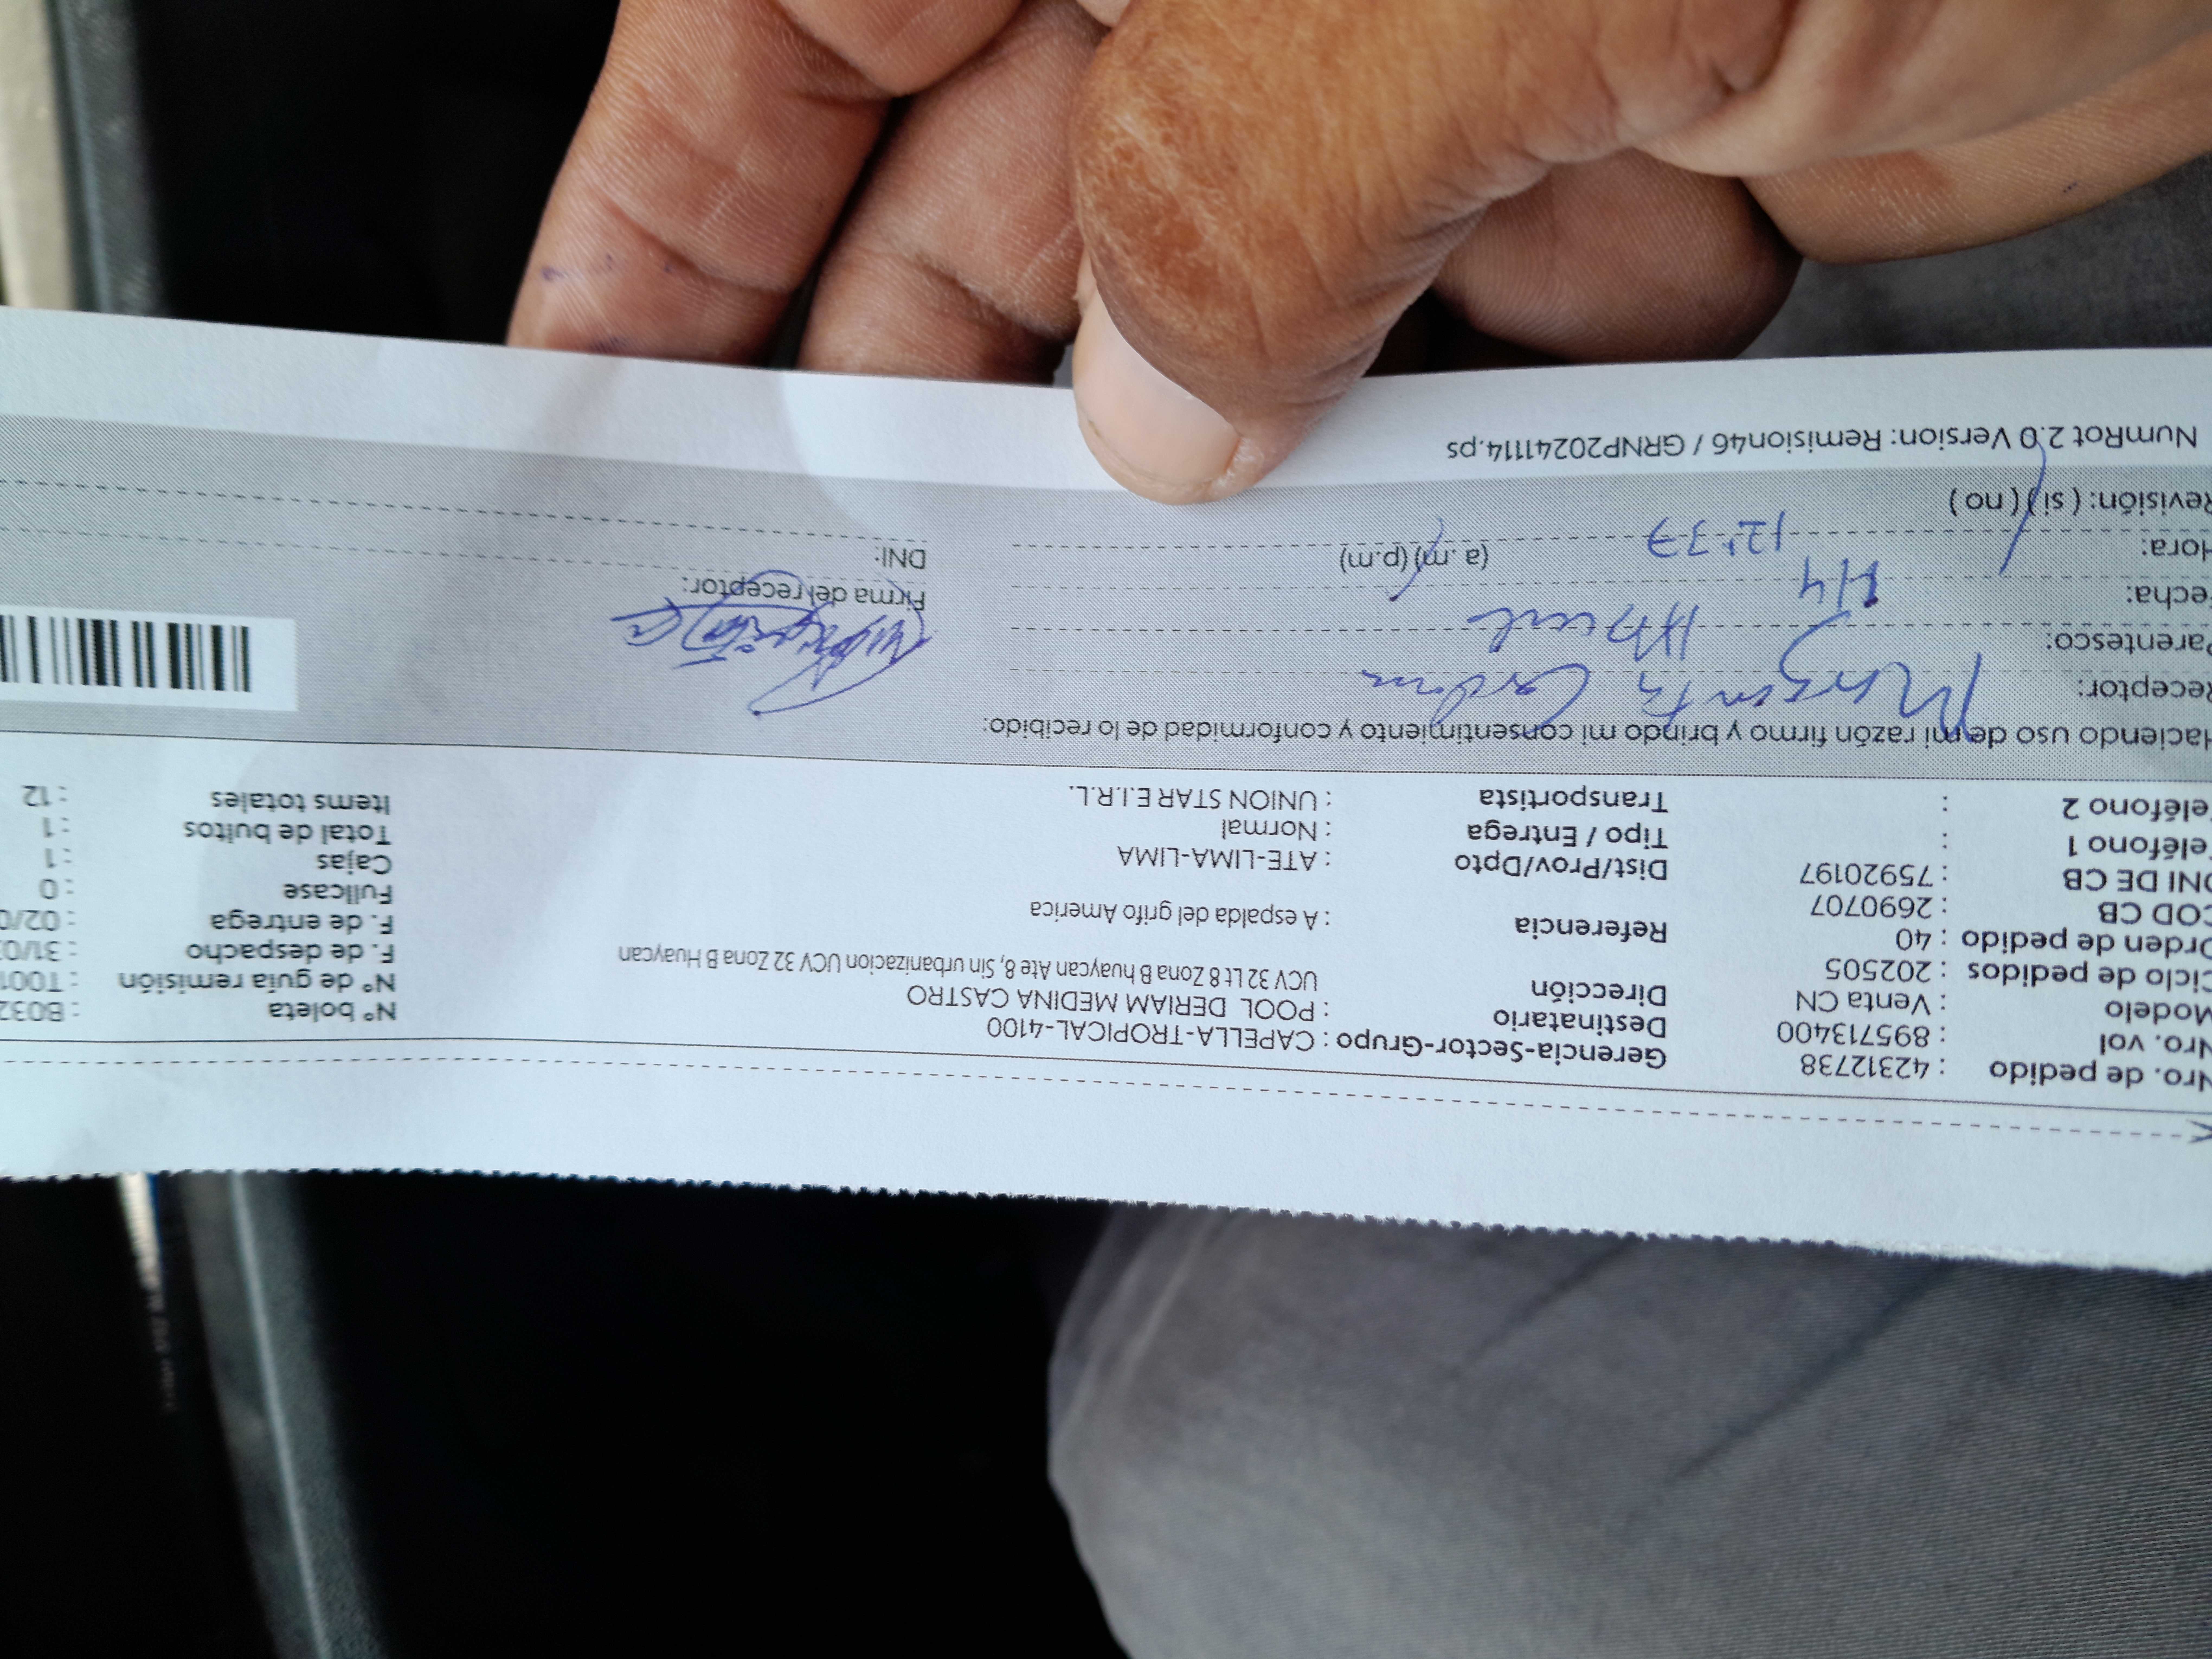 Nro. de pedido : 42312738 Gerencia-Sector-Grupo : CAPELLA-TROPICAL-4100 N° boleta : B032
Nro. vol : 895713400 Destinatario : POOL DERIAM MEDINA CASTRO N° de guía remisión : T001
Modelo : Venta CN Dirección UCV 32 Lt 8 Zona B huaycan Ate 8, Sin urbanizacion UCV 32 Zona B Huaycan F. de despacho : 31/0
Ciclo de pedidos : 202505 Referencia : A espalda del grifo America F. de entrega : 02/0
Orden de pedido : 40 Fullcase : 0
COD CB : 2690707 Dist/Prov/Dpto : ATE-LIMA-LIMA Cajas : 1
DNI DE CB : 75920197 Tipo / Entrega : Normal Total de bultos : 1
Teléfono 1 : Transportista : UNION STAR E.I.R.L. Items totales : 12
Teléfono 2 :
Haciendo uso de mi razón firmo y brindo mi consentimiento y conformidad de lo recibido:
Receptor:
Parentesco:
Fecha: 1/4 Firma del receptor:
Hora: 12:37 (a.m) (p.m) DNI:
Revisión: ( si ) ( no )
NumRot 2.0 Version: Remision46 / GRNP20241114.ps